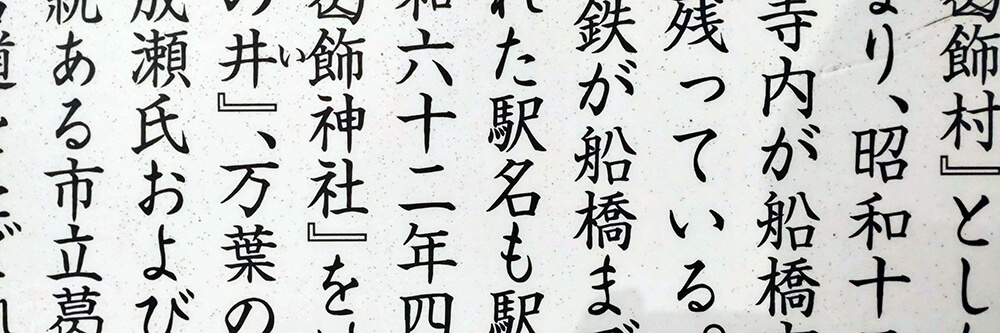 葛飾村』とし
なり、昭和十
寺内が船橋
残っている。
鉄が船橋まで
れた駅名も駅
和六十二年四
葛飾神社』を
の井い』、万葉の
成瀬氏および
統ある市立葛
道